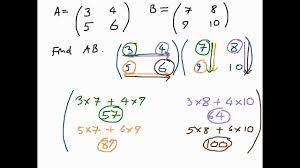 A = ( 3 4 B = ( 7 8
5 6 ) 9 10 )
Find AB. ( 3 4 ( 7 8
5 6 ) 9 10 )
3×7 + 4×9 3×8 + 4×10
57 64
5×7 + 6×9 5×8 + 6×10
89 100